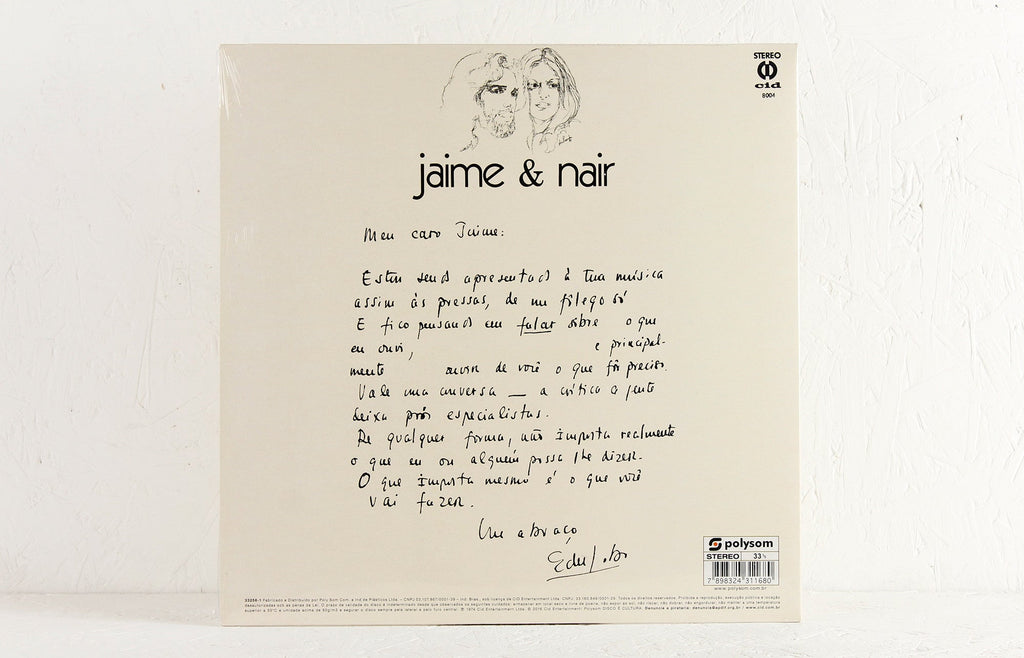 STEREO
cid
8004
jaime & nair
Meu caro Jaime:
Estou sendo apresentado à tua música
assim às pressas, de um fôlego só
E fico pensando em falar sôbre o que
eu ouvi, e principal-
mente ouvir de você o que fôr preciso.
Vale uma conversa — a crítica a gente
deixa prós especialistas.
De qualquer forma, não importa realmente
o que eu ou alguém possa lhe dizer.
O que importa mesmo é o que você
vai fazer.
Um abraço
Edu Lobo
polysom
STEREO 33⅓
7 898324 311680
www.polysom.com.br